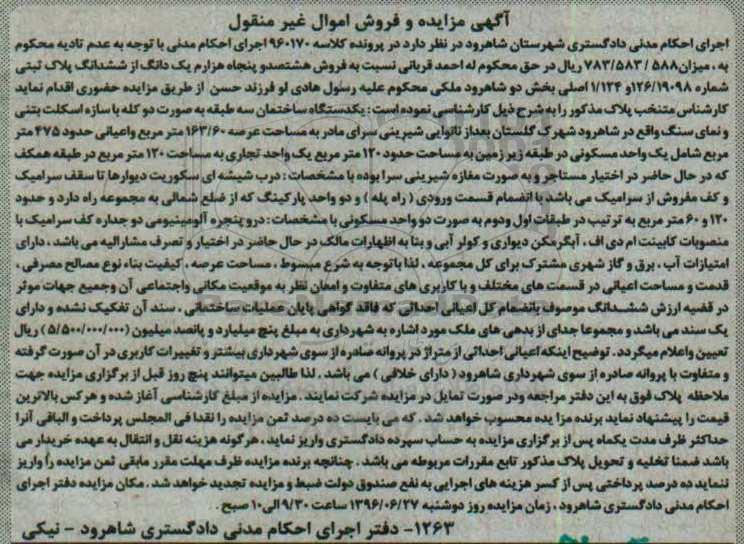 آگهی مزایده و فروش اموال غیر منقول
اجرای احکام مدنی دادگستری شهرستان شاهرود در نظر دارد در پرونده کلاسه ۹۶۰۱۷۰ اجرای احکام مدنی با توجه به عدم تادیه محکوم
به ، میزان ۵۸۸ / ۷۸۳/۵۸۳ ریال در حق محکوم له احمد قربانی نسبت به فروش هشتصدو پنجاه هزارم یک دانگ از ششدانگ پلاک ثبتی
شماره ۱۲۶/۱۹۰۹۸و ۱/۱۲۴ اصلی بخش دو شاهرود ملکی محکوم علیه رسول هادی لو فرزند حسن از طریق مزایده حضوری اقدام نماید
کارشناس منتخب پلاک مذکور را به شرح ذیل کارشناسی نموده است : یکدستگاه ساختمان سه طبقه به صورت دو کله با سازه اسکلت بتنی
و نمای سنگ واقع در شاهرود شهرک گلستان بعداز نانوایی شیرینی سرای مادر به مساحت عرصه ۱۶۳/۶۰ متر مربع واعیانی حدود ۴۷۵ متر
مربع شامل یک واحد مسکونی در طبقه زیر زمین به مساحت حدود ۱۲۰ متر مربع یک واحد تجاری به مساحت ۱۲۰ متر مربع در طبقه همکف
که در حال حاضر در اختیار مستاجر و به صورت مغازه شیرینی سرا بوده با مشخصات : درب شیشه ای سکوریت دیوارها تا سقف سرامیک
و کف مفروش از سرامیک می باشد با انضمام قسمت ورودی ( راه پله ) و دو واحد پارکینگ که از ضلع شمالی به مجموعه راه دارد و حدود
۱۲۰ و ۶۰ متر مربع به ترتیب در طبقات اول ودوم به صورت دو واحد مسکونی با مشخصات : درو پنجره آلومینیومی دو جداره کف سرامیک با
منصوبات کابینت ام دی اف ، آبگرمکن دیواری و کولر آبی و بنا به اظهارات مالک در حال حاضر در اختیار و تصرف مشارالیه می باشد ، دارای
امتیازات آب ، برق و گاز شهری مشترک برای کل مجموعه ، لذا باتوجه به شرح مبسوط ، مساحت عرصه ، کیفیت بناء نوع مصالح مصرفی ،
قدمت و مساحت اعیانی در قسمت های مختلف و با کاربری های متفاوت و امعان نظر به موقعیت مکانی واجتماعی آن وجمیع جهات موثر
در قضیه ارزش ششدانگ موصوف بانضمام کل اعیانی احداثی که فاقد گواهی پایان عملیات ساختمانی ، سند آن تفکیک نشده و دارای
یک سند می باشد و مجموعا جدای از بدهی های ملک مورد اشاره به شهرداری به مبلغ پنج میلیارد و پانصد میلیون (۵/۵۰۰/۰۰۰/۰۰۰) ریال
تعیین واعلام میگردد . توضیح اینکه اعیانی احداثی از متراژ در پروانه صادره از سوی شهرداری بیشتر و تغییرات کاربری در آن صورت گرفته
و متفاوت با پروانه صادره از سوی شهرداری شاهرود ( دارای خلافی ) می باشد . لذا طالبین میتوانند پنج روز قبل از برگزاری مزایده جهت
ملاحظه پلاک فوق به این دفتر مراجعه ودر صورت تمایل در مزایده شرکت نمایند . مزایده از مبلغ کارشناسی آغاز شده و هر کس بالاترین
قیمت را پیشنهاد نماید برنده مزا یده محسوب خواهد شد . که می بایست ده درصد ثمن مزایده را نقدا فی المجلس پرداخت و الباقی آنرا
حداکثر ظرف مدت یکماه پس از برگزاری مزایده به حساب سپرده دادگستری واریز نماید ، هرگونه هزینه نقل و انتقال به عهده خریدار می
باشد ضمنا تخلیه و تحویل پلاک مذکور تابع مقررات مربوطه می باشد . چنانچه برنده مزایده ظرف مهلت مقرر مابقی ثمن مزایده را واریز
ننماید ده درصد پرداختی پس از کسر هزینه های اجرایی به نفع صندوق دولت ضبط و مزایده تجدید خواهد شد . مکان مزایده دفتر اجرای
احکام مدنی دادگستری شاهرود ، زمان مزایده روز دوشنبه ۱۳۹۶/۰۶/۲۷ ساعت ۹/۳۰ الی۱۰ صبح .
۱۲۶۳- دفتر اجرای احکام مدنی دادگستری شاهرود - نیکی